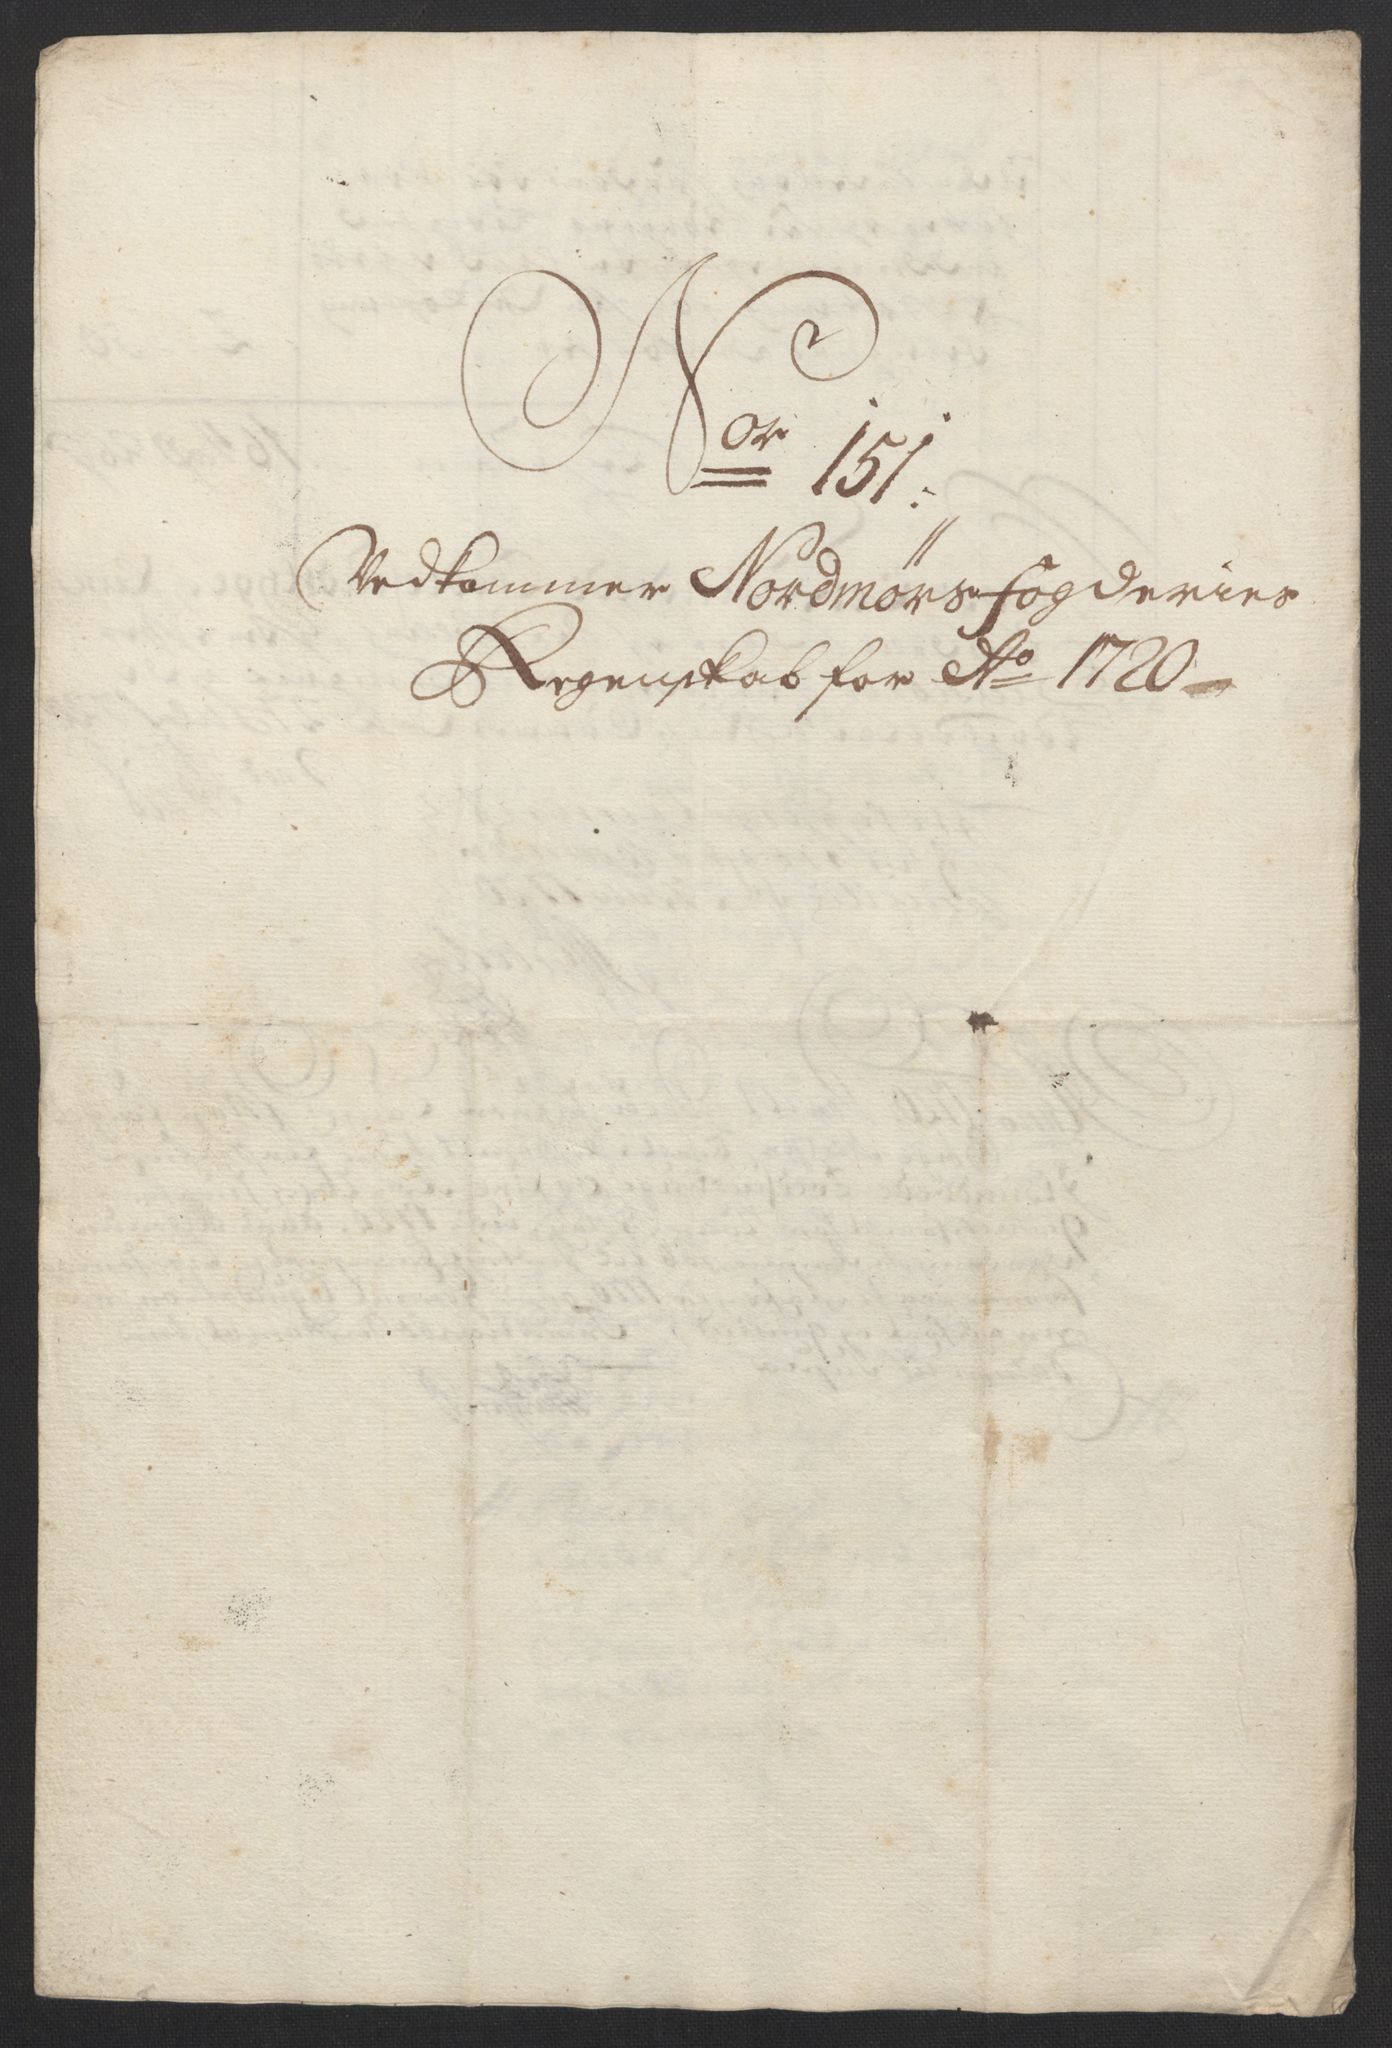 Nor 151.
Vedkommer Nordmørs fogderies
Regenskab for Ao 1720